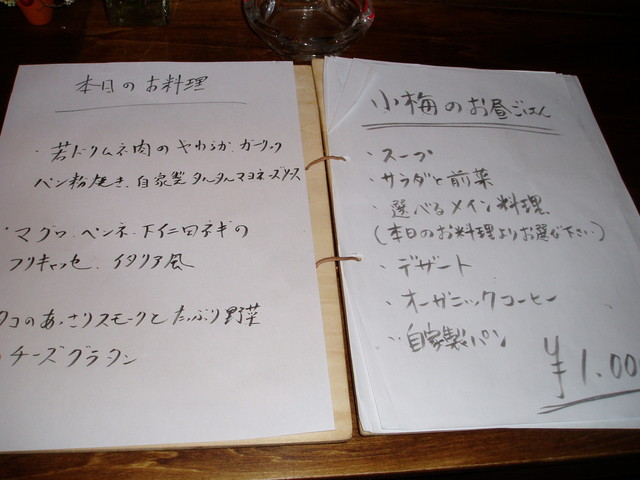 本日のお料理
・若ドリムネ肉のやわらか ガーリック
パン粉焼き、自家製タルタルマヨネーズソース
マグロ、ペンネ、下仁田ネギの
フリキャッセ、イタリア風
タコのあっさりスモークとたっぷり野菜
チーズグラタン
小梅のお昼ごはん
・スープ
・サラダと前菜
・選べるメイン料理
(本日のお料理よりお選び下さい)
・デザート
・オーガニックコーヒー
・自家製パン
¥1.00